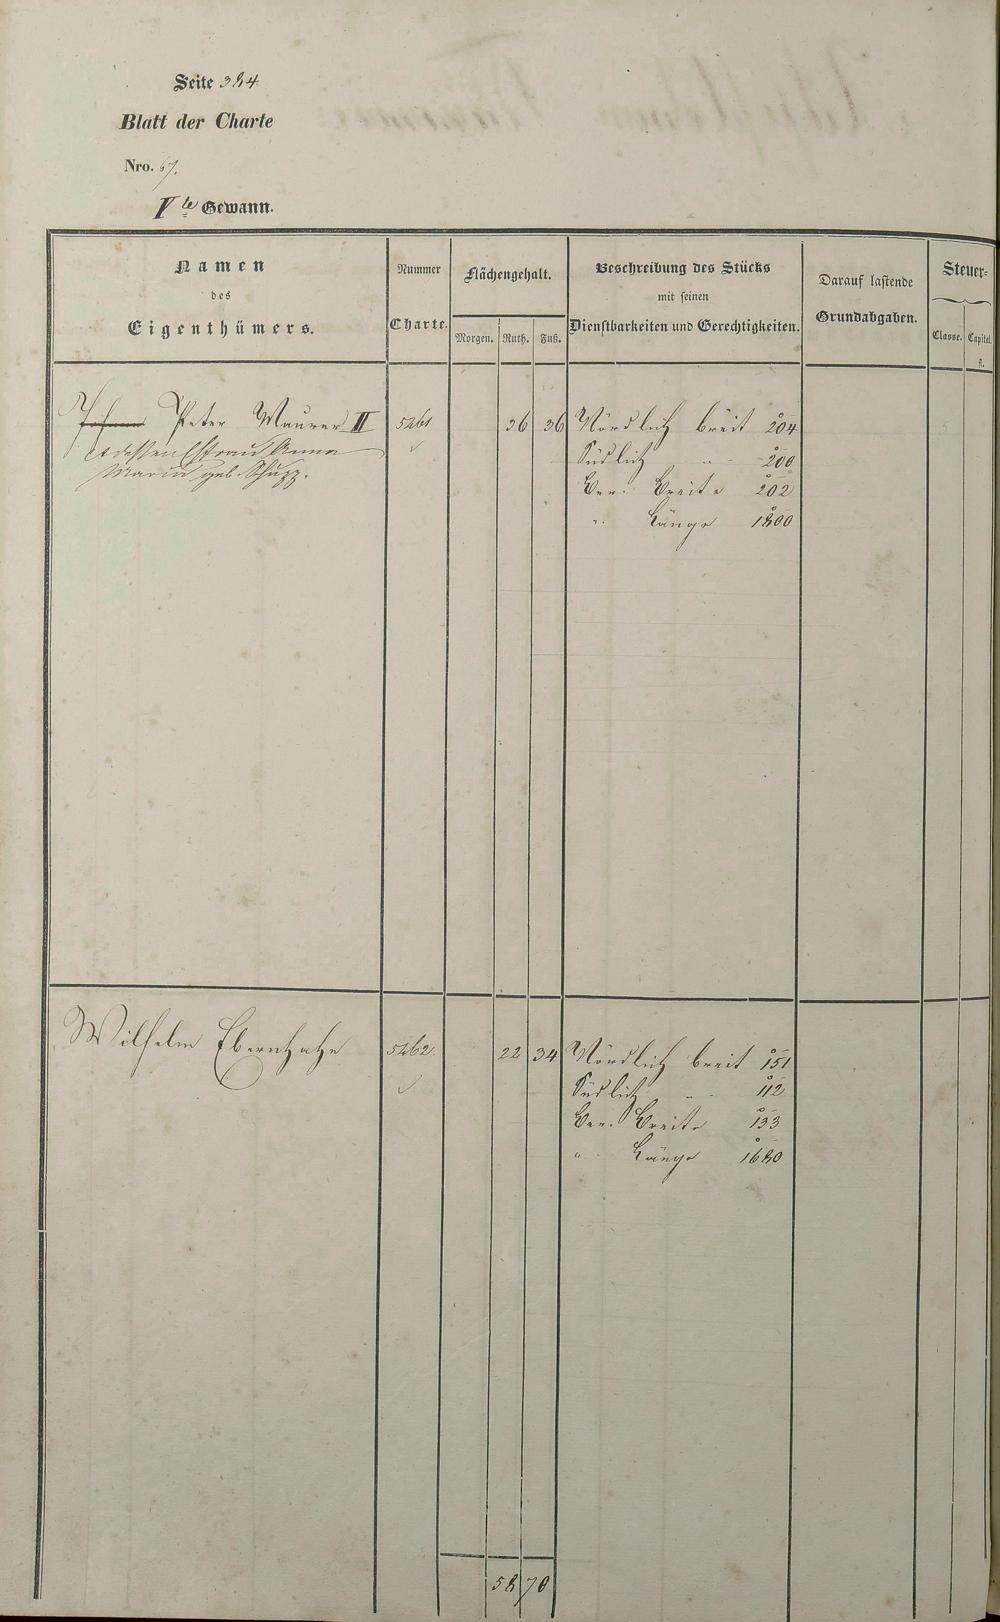 Seite 384
Blatt der Charte
Nro. 67.
Vte Gewann.
Namen
des
Eigenthümers.
Nummer
Charte.
Flächengehalt.
Morgen. Ruth. Fuß.
Beschreibung des Stücks
mit seinen
Dienstbarkeiten und Gerechtigkeiten.
Darauf lastende
Grundabgaben.
Steuer-
Classe. Capital.
fl.
Johann Peter Maurer II 5261 36 36 Nördlich breit 204
et dessen Ehefrau Anna
Maria geb. Schupp.
Südlich " 200
Ver. Breite 202
" Länge 1800
Wilhelm Ebernhahn 5262. 22 34 Nördlich breit 151
Südlich " 112
Ver. Breite 133
" Länge 1680
58 70